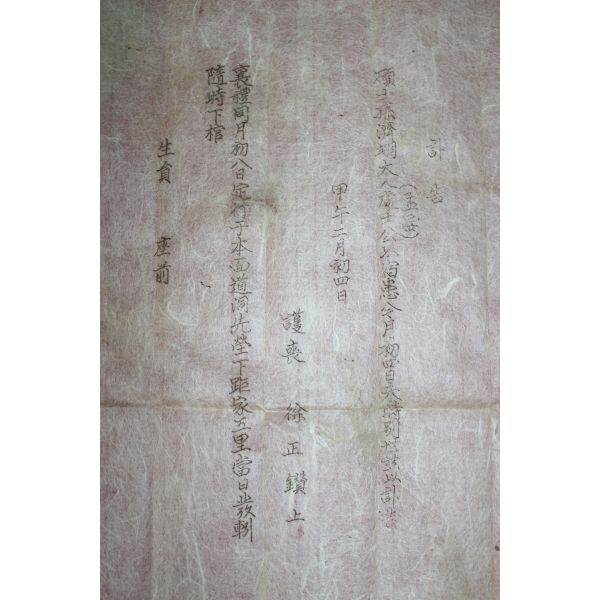 訃告
孫濟翊大人處士公以宿患今月初四日夫時別世玆以訃告
甲午二月初四日
護喪 徐正鑽 上
襄禮同月初八日定行于本面道洞先塋下距家五里當日發靷
隨時下棺
生員 座前